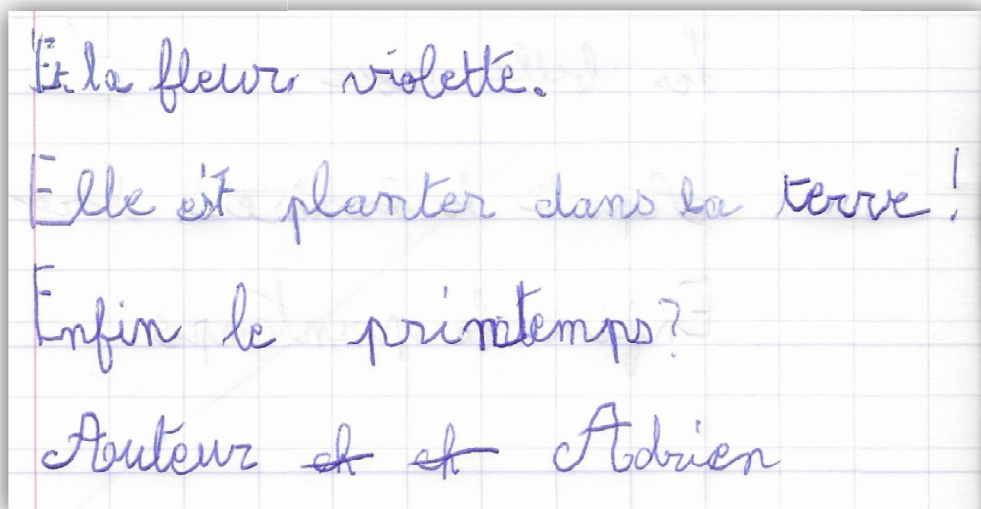 Et la fleur violette.
Elle est planter dans la terre!
Enfin le printemps?
Auteur Adrien